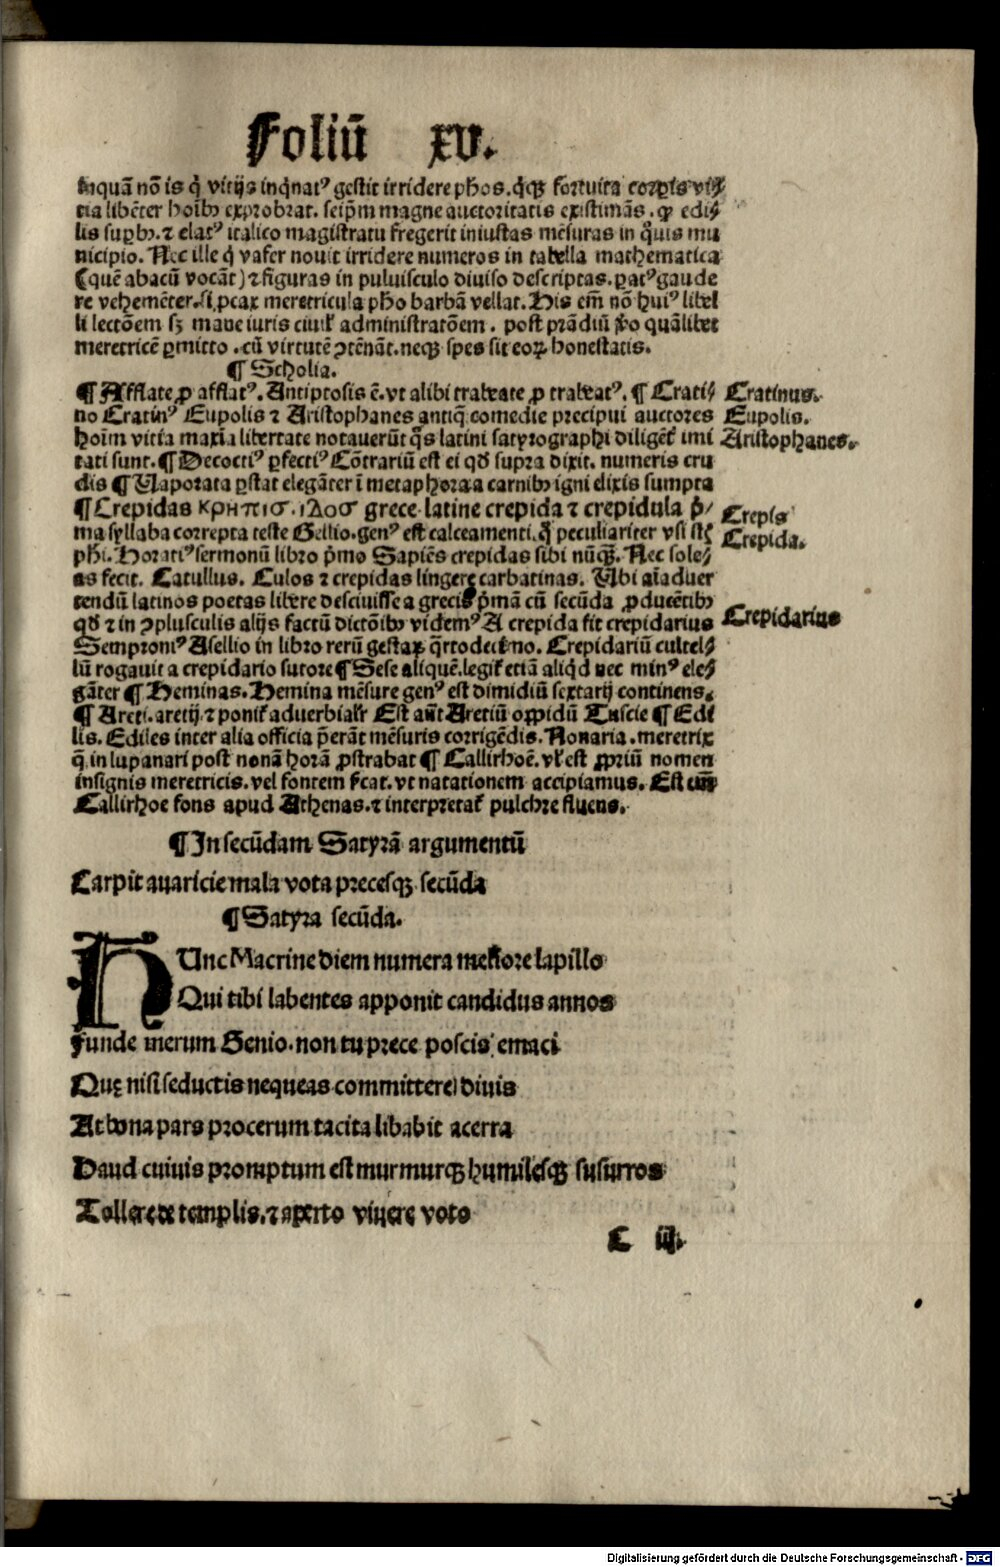 Foliū xv.
inquā nō is q̇ vitijs inq̇natꝰ gestit irridere phos. q̇qꝫ fortuita corꝑis vi⸗
tia libēter hoībꝫ exprobrat. seipm magne auctoritatis existimās. ꝙ edi⸗
lis suꝑbꝫ. ⁊ elatꝰ italico magistratu fregerit iniustas mēsuras in q̇uis mu
nicipio. Nec ille q̇ vafer nouit irridere numeros in tabella mathematica
(quē abacū vocāt) ⁊ figuras in puluisculo diuiso descriptas. ꝑatꝰ gaude
re vehemēter. si ꝓcax meretricula pho barbā vellat. His em̄ nō huiꝰ libel
li lectōem sꝫ mane iuris ciuil' administratōem. post prādiū ꝟo quālibet
meretricē ꝑmitto. cū virtutē ꝯtēnāt. neqꝫ spes sit eoꝝ honestatis.
¶ Scholia.
¶ Afflate ꝓ afflatꝰ. Antiptosis ē. vt alibi trabeate ꝓ trabeatꝰ. ¶ Crati⸗
no Cratinꝰ Eupolis ⁊ Aristophanes antiq̄ comedie precipui auctores
hoīm vitia maxīa libertate notauerūt q̇s latini satyrographi diligēt' imi
tati sunt. ¶ Decoctiꝰ ꝑfectiꝰ Cōtrariū est ei qd̄ supra dixit. numeris cru
dis ¶ Vaporata ꝑstat elegāter ī metaphora a carnibꝫ igni elixis sumpta
¶ Crepidas κρηπισ. ιδοσ grece latine crepida ⁊ crepidula p̄⸗
ma syllaba correpta teste Gellio. genꝰ est calceamenti. q̊ peculiariter vsi sūt
phi. Horatiꝰ sermonū libro p̄mo Sapiēs crepidas sibi nūq̄ꝫ. Nec sole⸗
as fecit. Catullus. Culos ⁊ crepidas lingere carbatinas. Vbi aīaduer
tendū latinos poetas libere desciuisse a grecis p̄mā cū secūda ꝓducētibꝫ
qd̄ ⁊ in ꝯplusculis alijs factū dictōibꝫ videmꝰ A crepida fit crepidarius
Semproniꝰ Asellio in libro rerū gestaꝝ q̄rtodecimo. Crepidariū cultel⸗
lū rogauit a crepidario sutore ¶ Sese aliquē. legit' etiā aliq̇d nec minꝰ ele⸗
gāter ¶ Heminas. Hemina mēsure genꝰ est dimidiū sextarij continens.
¶ Areti. aretij. ⁊ ponit' aduerbialr̄ Est aūt Aretiū oppidū Tuscie ¶ Edi
lis. Ediles inter alia officia p̄erāt mēsuris corrigēdis. Nonaria. meretrix
q̄ in lupanari post nonā horā ꝓstrabat ¶ Callirhoē. vl' est ꝓpriū nomen
insignis meretricis. vel fontem st'cat. vt natationem accipiamus. Est enī
Callirhoe fons apud Athenas. ⁊ interpretat' pulchre fluens.
Cratinus.
Eupolis.
Aristophanes.
Crepis
Crepida.
Crepidarius
¶ In secūdam Satyrā argumentū
Carpit auaricie mala vota precesqꝫ secūda
¶ Satyra secūda.
HVnc Macrine diem numera meliore lapillo
Qui tibi labentes apponit candidus annos
Funde merum Genio. non tu prece poscis emaci
Quę nisi seductis nequeas committere diuis
At bona pars procerum tacita libabit acerra
Haud cuiuis promptum est murmurqꝫ humilesqꝫ susurros
Tollere de templis. ⁊ aperto viuere voto
C iij.
Digitalisierung gefördert durch die Deutsche Forschungsgemeinschaft - DFG